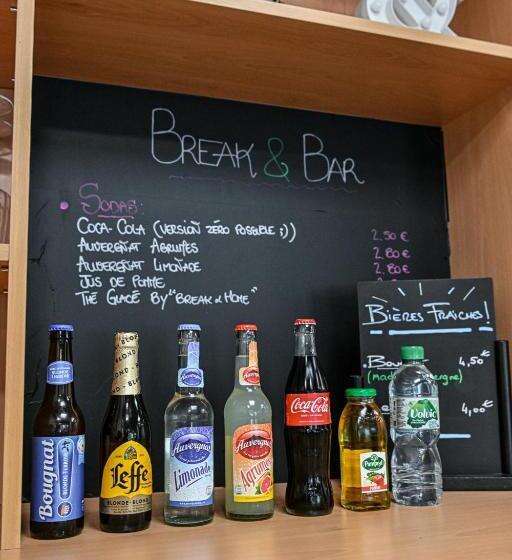 BREAK & BAR
SODAS:
COCA-COLA (VERSION ZÉRO POSSIBLE :)) 2,50 €
AUVERGNAT AGRUMES 2,80 €
AUVERGNAT LIMONADE 2,80 €
JUS DE POMME
THÉ GLACÉ BY "BREAK & HOME"
BIÈRES FRAÎCHES!
4,50€
4,00€
Bougnat
Leffe
BLONDE·BLOND
BLOND
Auvergnat
Limonade
Auvergnat
Agrumes
Coca-Cola
Pampryl
Volvic